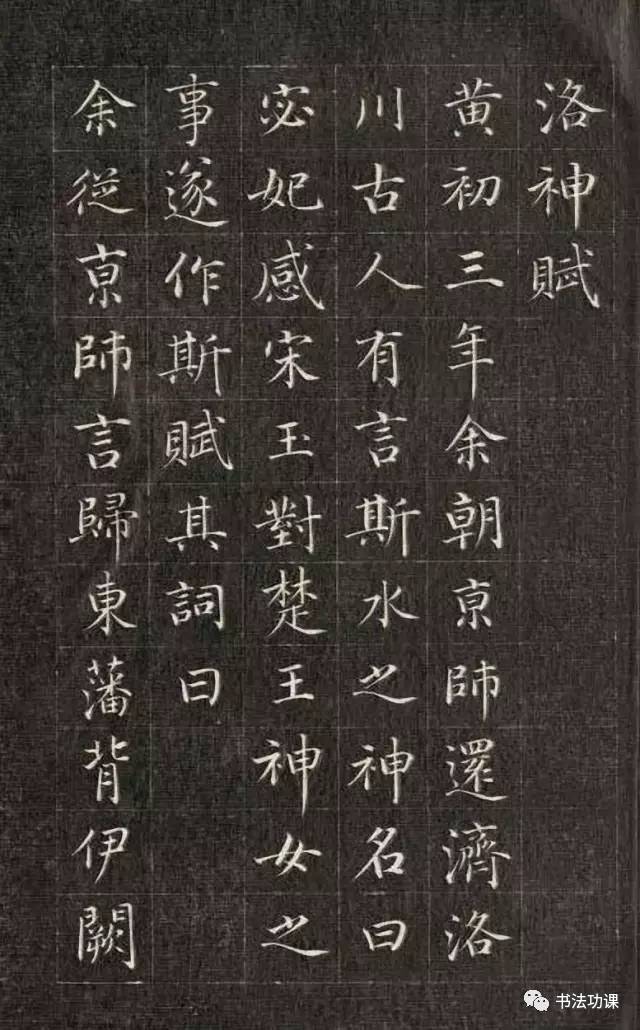 洛神賦
黄初三年余朝京師還濟洛
川古人有言斯水之神名曰
宓妃感宋玉對楚王神女之
事遂作斯賦其詞曰
余從京師言歸東藩背伊闕
书法功课